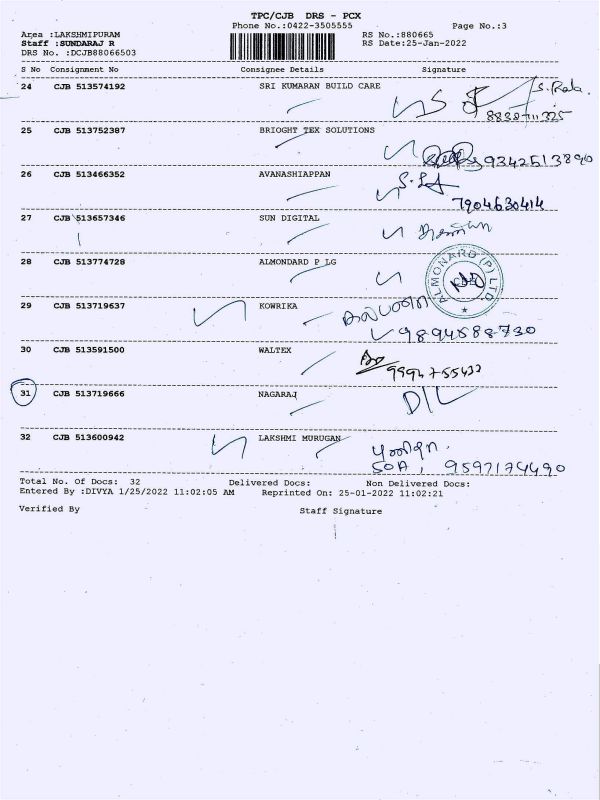 TPC/CJB DRS - PCX
Phone No.:0422-3505555 Page No.:3
Area :LAKSHMIPURAM RS No.:880665
Staff :SUNDARAJ R RS Date:25-Jan-2022
DRS No. :DCJB88066503
S No Consignment No Consignee Details Signature
24 CJB 513574192 SRI KUMARAN BUILD CARE
25 CJB 513752387 BRIOGHT TEX SOLUTIONS
9342513890
26 CJB 513466352 AVANASHIAPPAN
7904630414
27 CJB 513657346 SUN DIGITAL
28 CJB 513774728 ALMONDARD P LG
ALMONARD (P) LTD.
29 CJB 513719637 KOWRIKA
9894588730
30 CJB 513591500 WALTEX
9994755433
31 CJB 513719666 NAGARAJ
D/L
32 CJB 513600942 LAKSHMI MURUGAN
9597174490
Total No. Of Docs: 32 Delivered Docs: Non Delivered Docs:
Entered By :DIVYA 1/25/2022 11:02:05 AM Reprinted On: 25-01-2022 11:02:21
Verified By Staff Signature